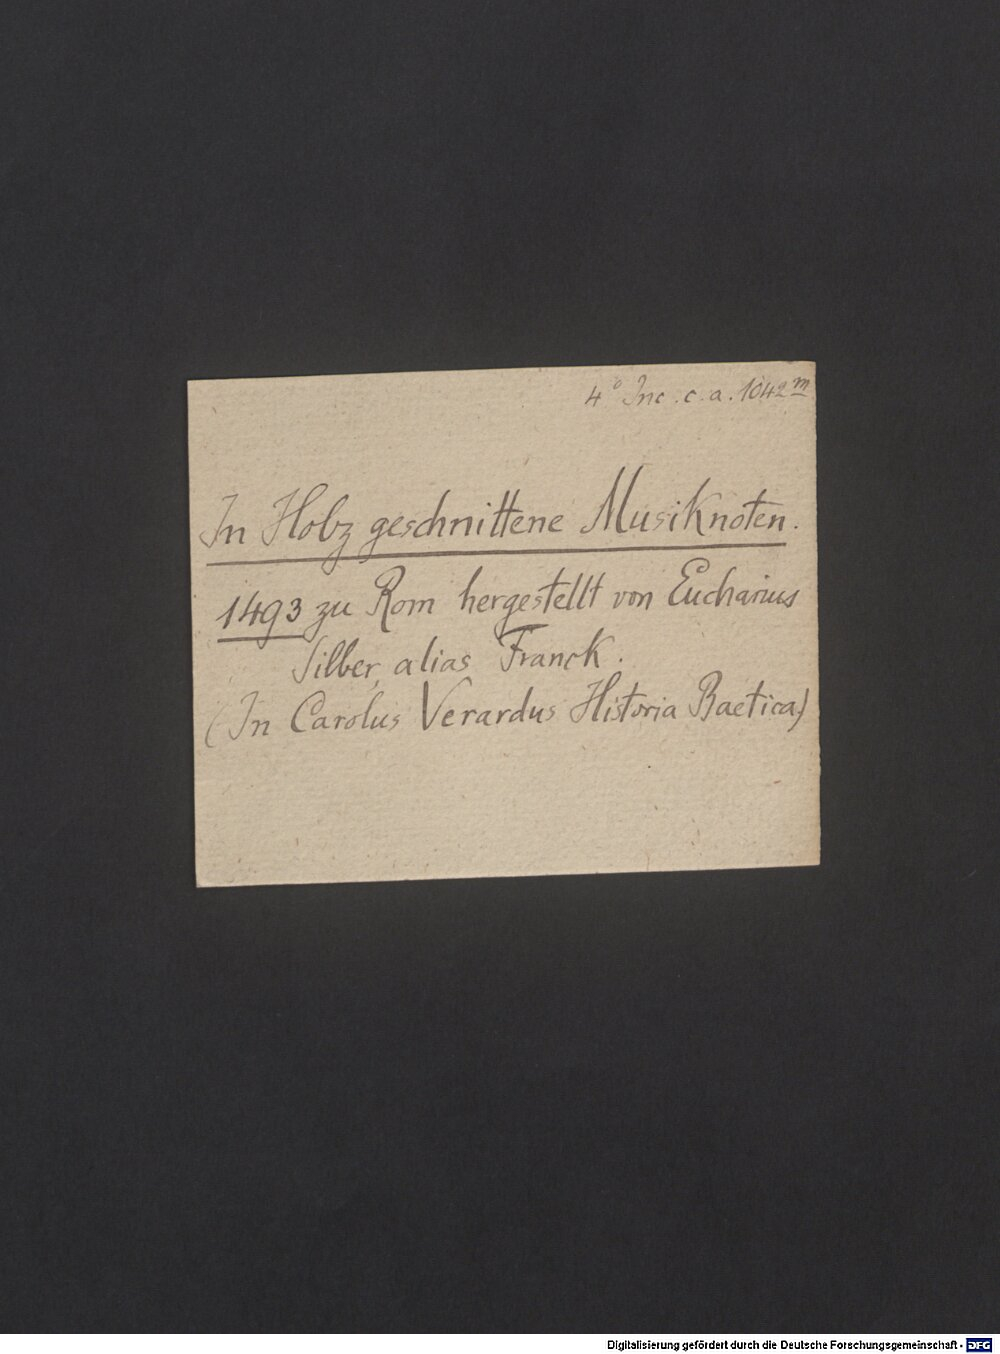 4° Inc. c. a. 1042 m
In Holz geschnittene Musiknoten.
1493 zu Rom hergestellt von Eucharius
Silber, alias Franck.
(In Carolus Verardus Historia Baetica)
Digitalisierung gefördert durch die Deutsche Forschungsgemeinschaft - DFG